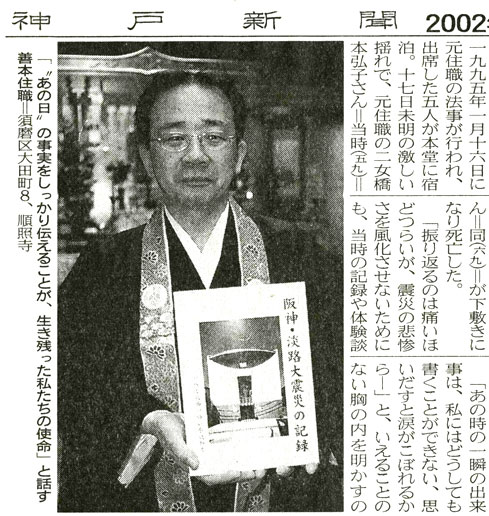 神戸新聞 2002
一九九五年一月十六日に
元住職の法事が行われ、
出席した五人が本堂に宿
泊。十七日未明の激しい
揺れで、元住職の二女橋
本弘子さん＝当時(五九)＝
ん＝同(六九)＝が下敷きに
なり死亡した。
「振り返るのは痛いほ
どつらいが、震災の悲惨
さを風化させないために
も、当時の記録や体験談
「あの時の一瞬の出来
事は、私にはどうしても
書くことができない、思
いだすと涙がこぼれるか
らー」と、いえることの
ない胸の内を明かすの
阪神・淡路大震災の記録
「〝あの日〟の事実をしっかり伝えることが、生き残った私たちの使命」と話す
善本住職＝須磨区大田町８、順照寺